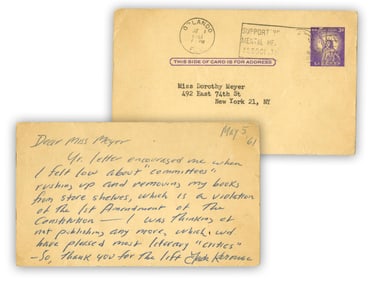 ORLANDO
SUPPORT
MENTAL
THIS SIDE OF CARD IS FOR ADDRESS
Miss Dorothy Meyer
492 East 74th St
New York 21, NY
May 5
61
Dear Miss Meyer
Yr. letter encouraged me when
I felt low about "committees"
rushing up and removing my books
from store shelves, which is a violation
of the 1st Amendment of the
Constitution — I was thinking of
not publishing any more, which wd
have pleased most literary "critics"
—So, thank you for the lift Jack Kerouac